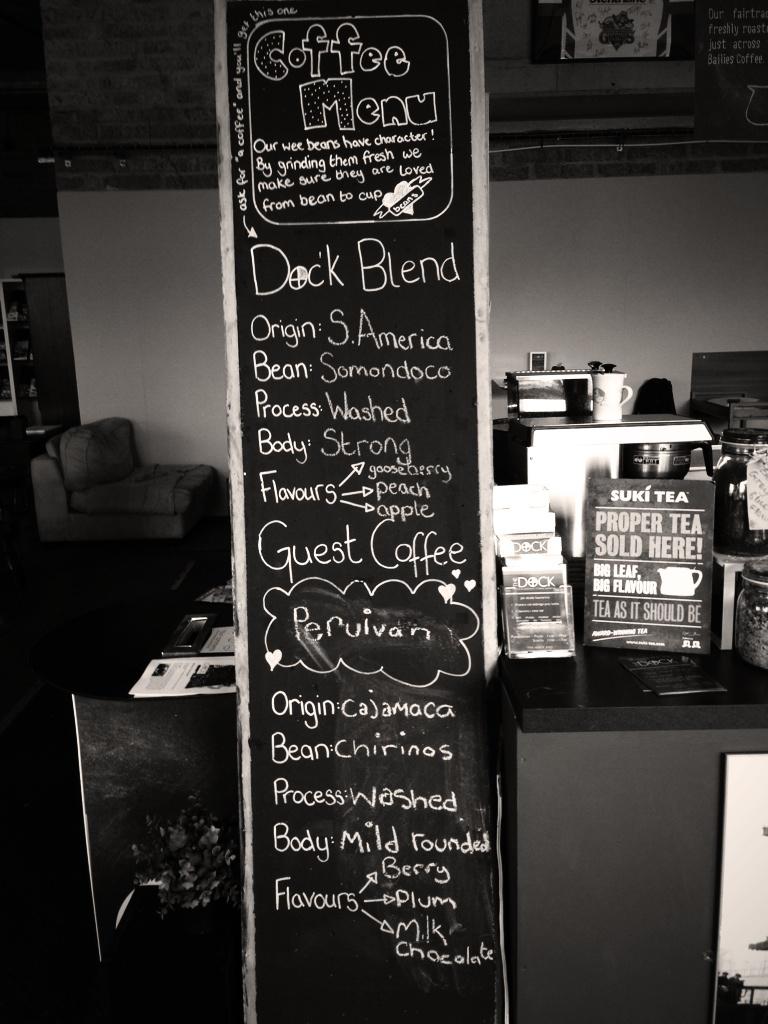 ask for "a coffee" and you'll get this one
Coffee
Menu
Our wee beans have character!
By grinding them fresh we
make sure they are loved
from bean to cup
beans
Dock Blend
Origin: S.America
Bean: Somondoco
Process: Washed
Body: Strong
Flavours
gooseberry
peach
apple
Guest Coffee
Peruivan
Origin: Cajamaca
Bean: Chirinos
Process: Washed
Body: Mild rounded
Flavours
Berry
Plum
Milk
Chocolate
Our fairtra
freshly roaste
just across
Bailies Coffee.
DOCK
THE DOCK
SUKI TEA
PROPER TEA
SOLD HERE!
BIG LEAF,
BIG FLAVOUR
TEA AS IT SHOULD BE
AWARD-WINNING TEA
DOCK